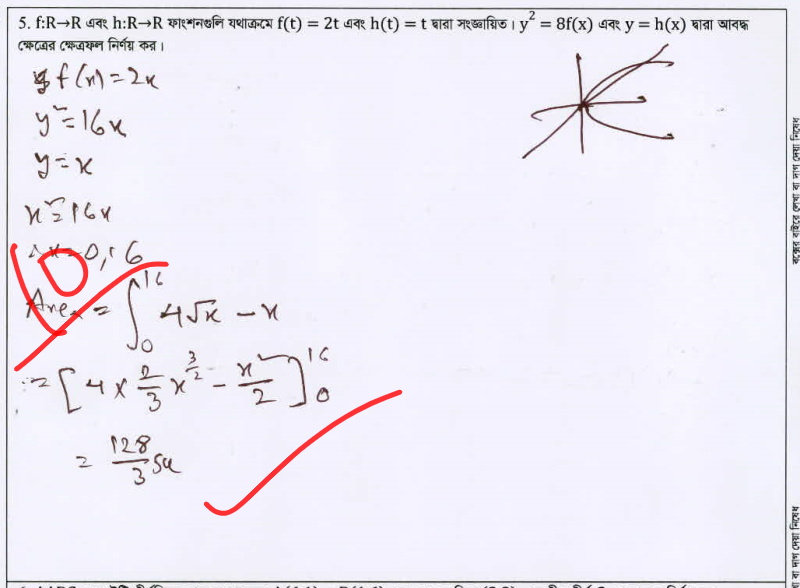 5. f:R→R এবং h:R→R ফাংশনগুলি যথাক্রমে f(t) = 2t এবং h(t) = t দ্বারা সংজ্ঞায়িত। y² = 8f(x) এবং y = h(x) দ্বারা আবদ্ধ
ক্ষেত্রের ক্ষেত্রফল নির্ণয় কর।
f(x) = 2x
y² = 16x
y = x
x² = 16x
∴ x = 0, 16
Area = ∫₀¹⁶ 4√x − x
= [4 × 2/3 x^(3/2) − x²/2]₀¹⁶
= 128/3 su
বক্সের বাইরে লেখা বা দাগ দেয়া নিষেধ
বা দাগ দেয়া নিষেধ